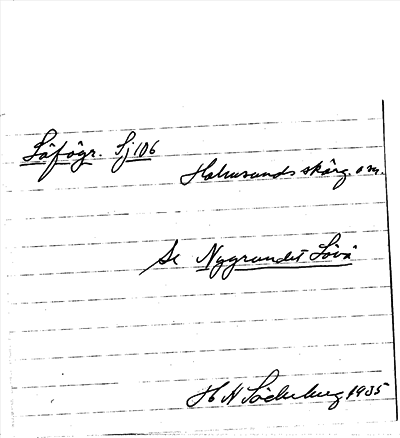 Löfögr. Sj 106
Holmsunds skärg. o m.
Se Nygrundet Lövö
H N Söderberg 1935